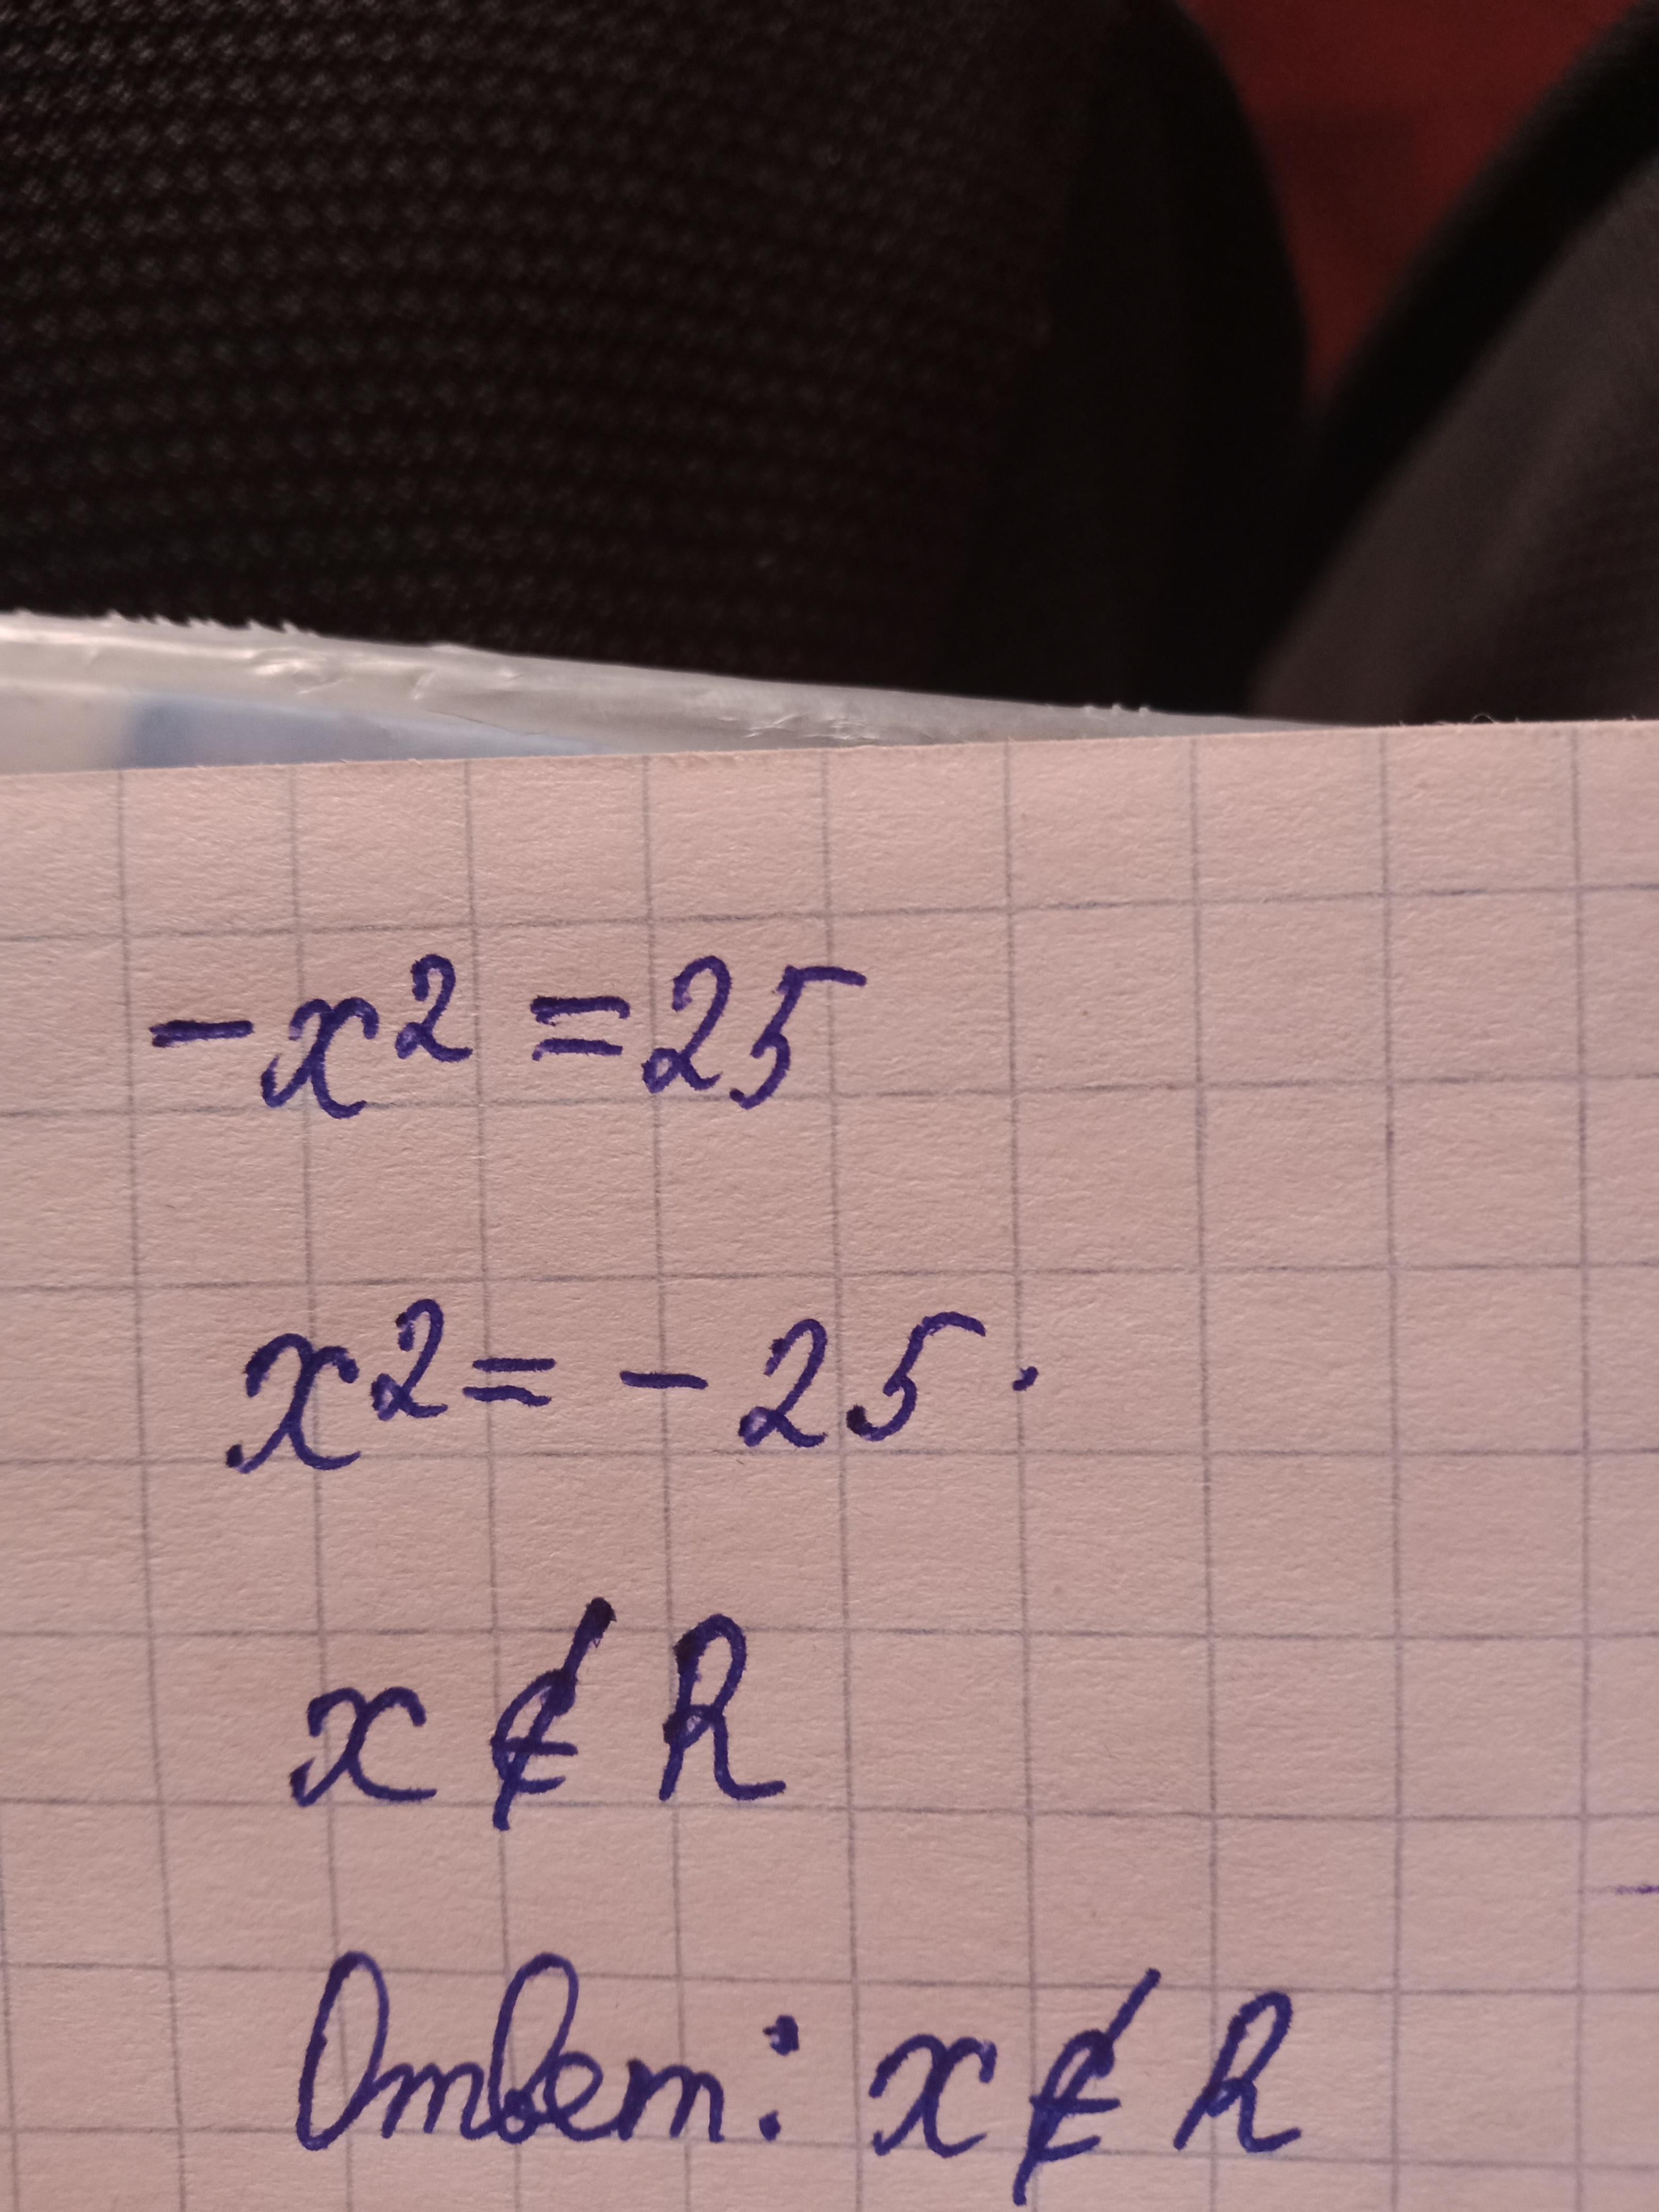 -x² = 25
x² = - 25.
x ∉ R
Ответ: x ∉ R